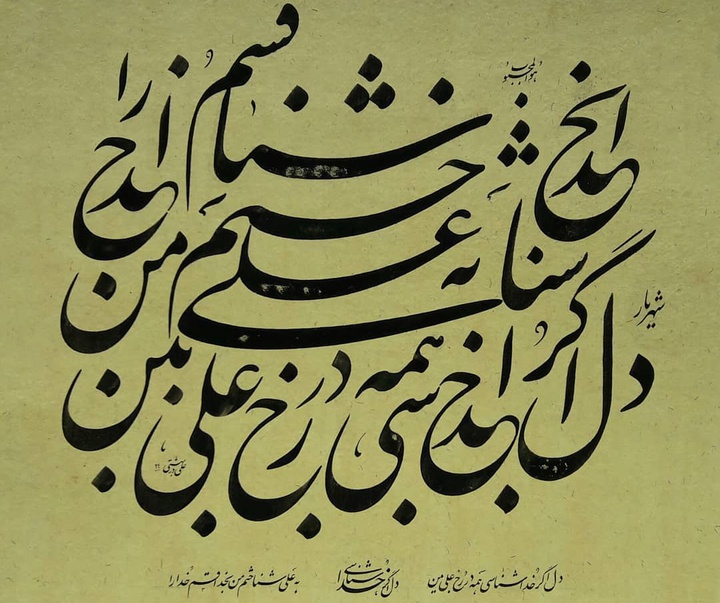 هوالمحبوب
دل اگر خدا شناسی همه در رخ علی بین
به علی شناختم من بخدا قسم خدا را
شهریار
دل اگر خدا شناسی همه در رخ علی بین دل اگر خدا شناسی به علی شناختم من بخدا قسم خدا را